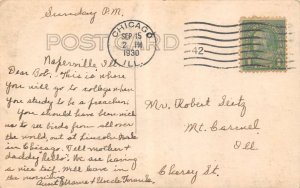 Sunday P.M.
POST CARD
CHICAGO
SEP 15
2 PM
1930
ILL.
42
Naperville Ill
Dear Bob: This is where
you will go to college when
you study to be a preacher.
You should have been with
us to see birds from all over
the world, out at Lincoln Park
in Chicago. Tell mother &
daddy hello. We are having
a nice trip. Will leave in
the morning.
Aunt & Uncle
Mr. Robert
Mt. Carmel
Ill
Cherry St.